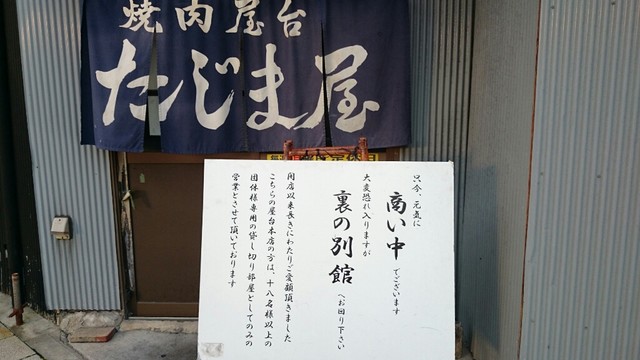 焼肉屋台
たじま屋
只今、元気に
商い中でございます
大変恐れ入りますが
裏の別館へお回り下さい
開店以来長きにわたりご愛顧頂きました
こちらの屋台本店の方は、十八名様以上の
団体様専用の貸し切り部屋としてのみの
営業とさせて頂いております